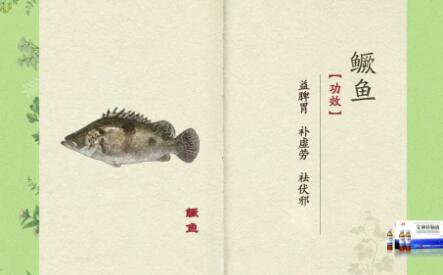 鳜鱼
【功效】
益脾胃 补虚劳 祛伏邪
鳜鱼